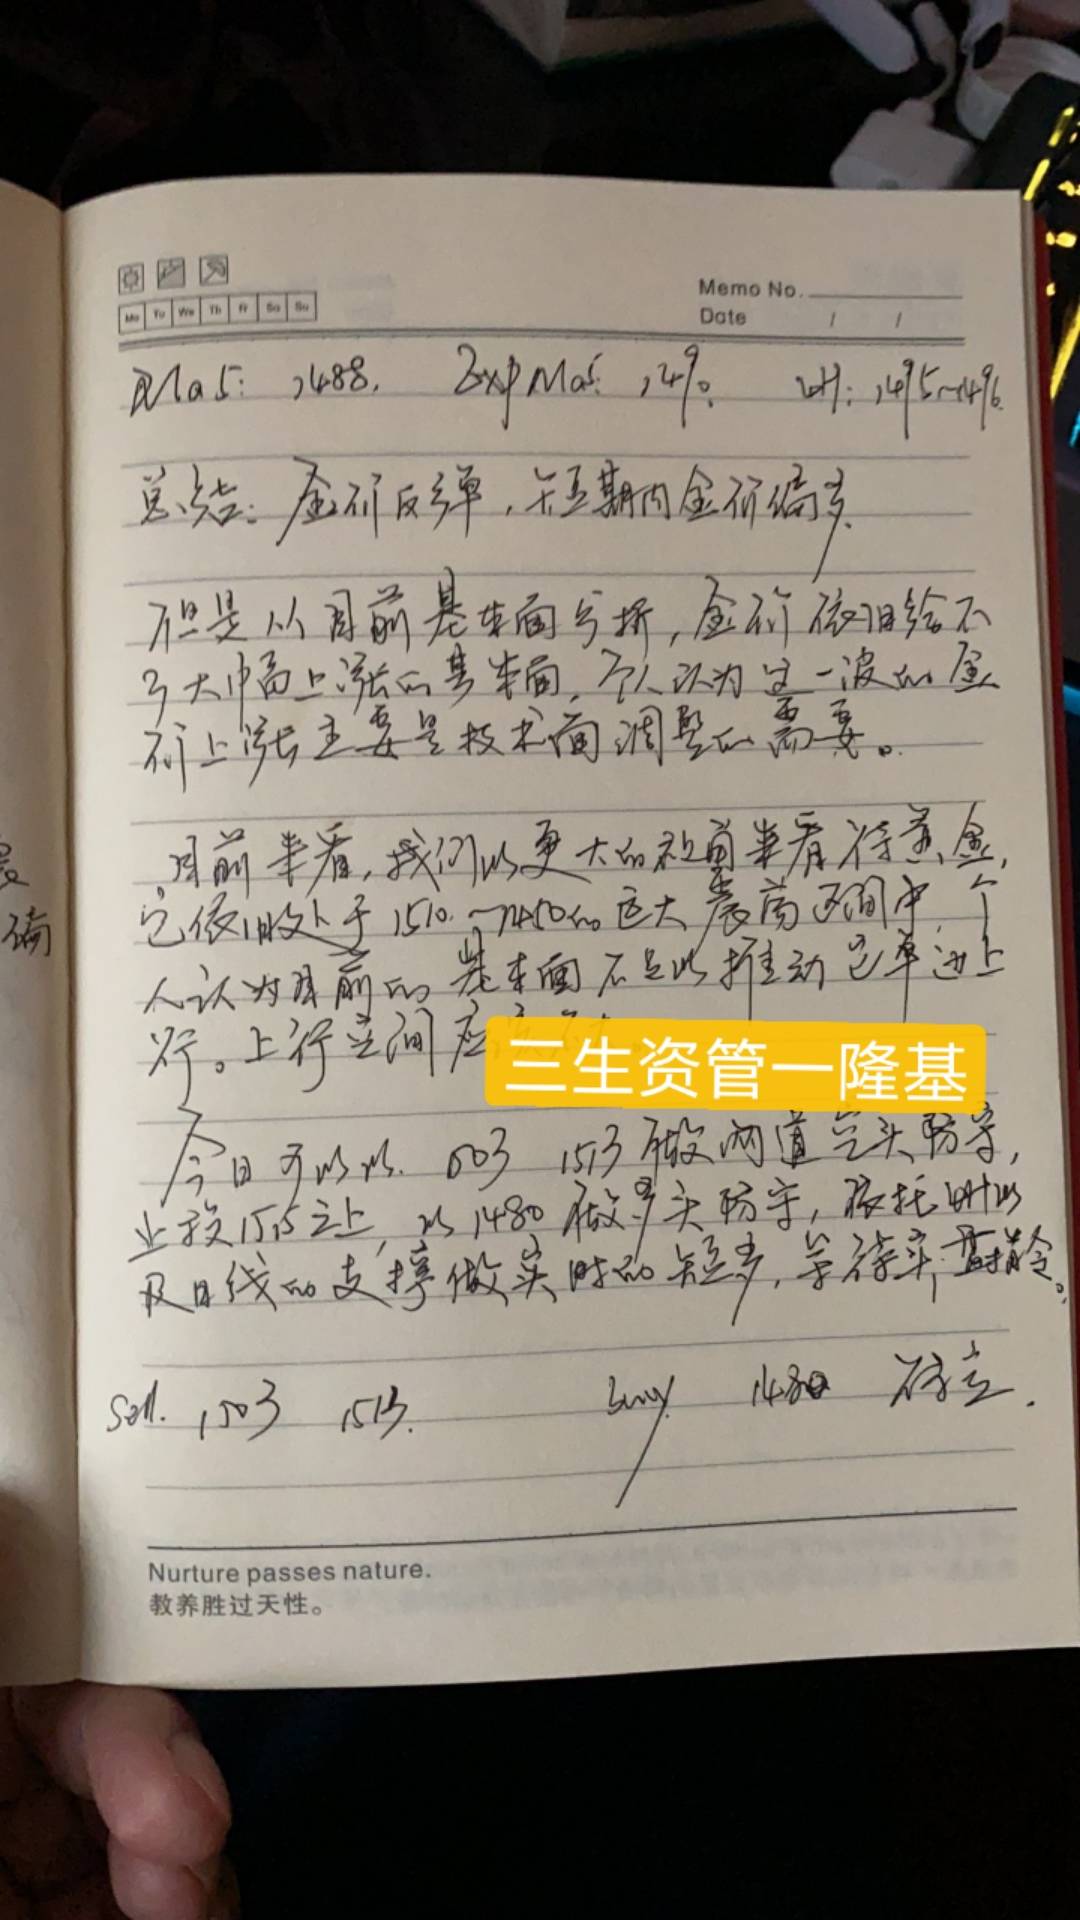 Mo Tu We Th Fr Sa Su
Memo No.
Date / /
Ma5: 1488. ExpMa5: 1490. 4H: 1495~1496.
总结: 金价反弹,短期内金价偏多.
但是从目前基本面分析,金价依旧给不
了大幅上涨的基本面,个人认为这一波的金
价上涨主要是技术面调整的需要。
目前来看,我们以更大的视角来看待黄金,
它依旧处于1510.~1450的巨大震荡区间中,个
人认为目前的基本面不足以推动它单边上
行。上行空间应
三生资管一隆基
今日可以以. 1503 1513做两道空头防守,
止损1515之上, 以1480做多头防守,依托4H以
及日线的支撑做实时的短多,等待实盘指令。
Sell. 1503 1513. buy. 1480
震
磅
Nurture passes nature.
教养胜过天性。